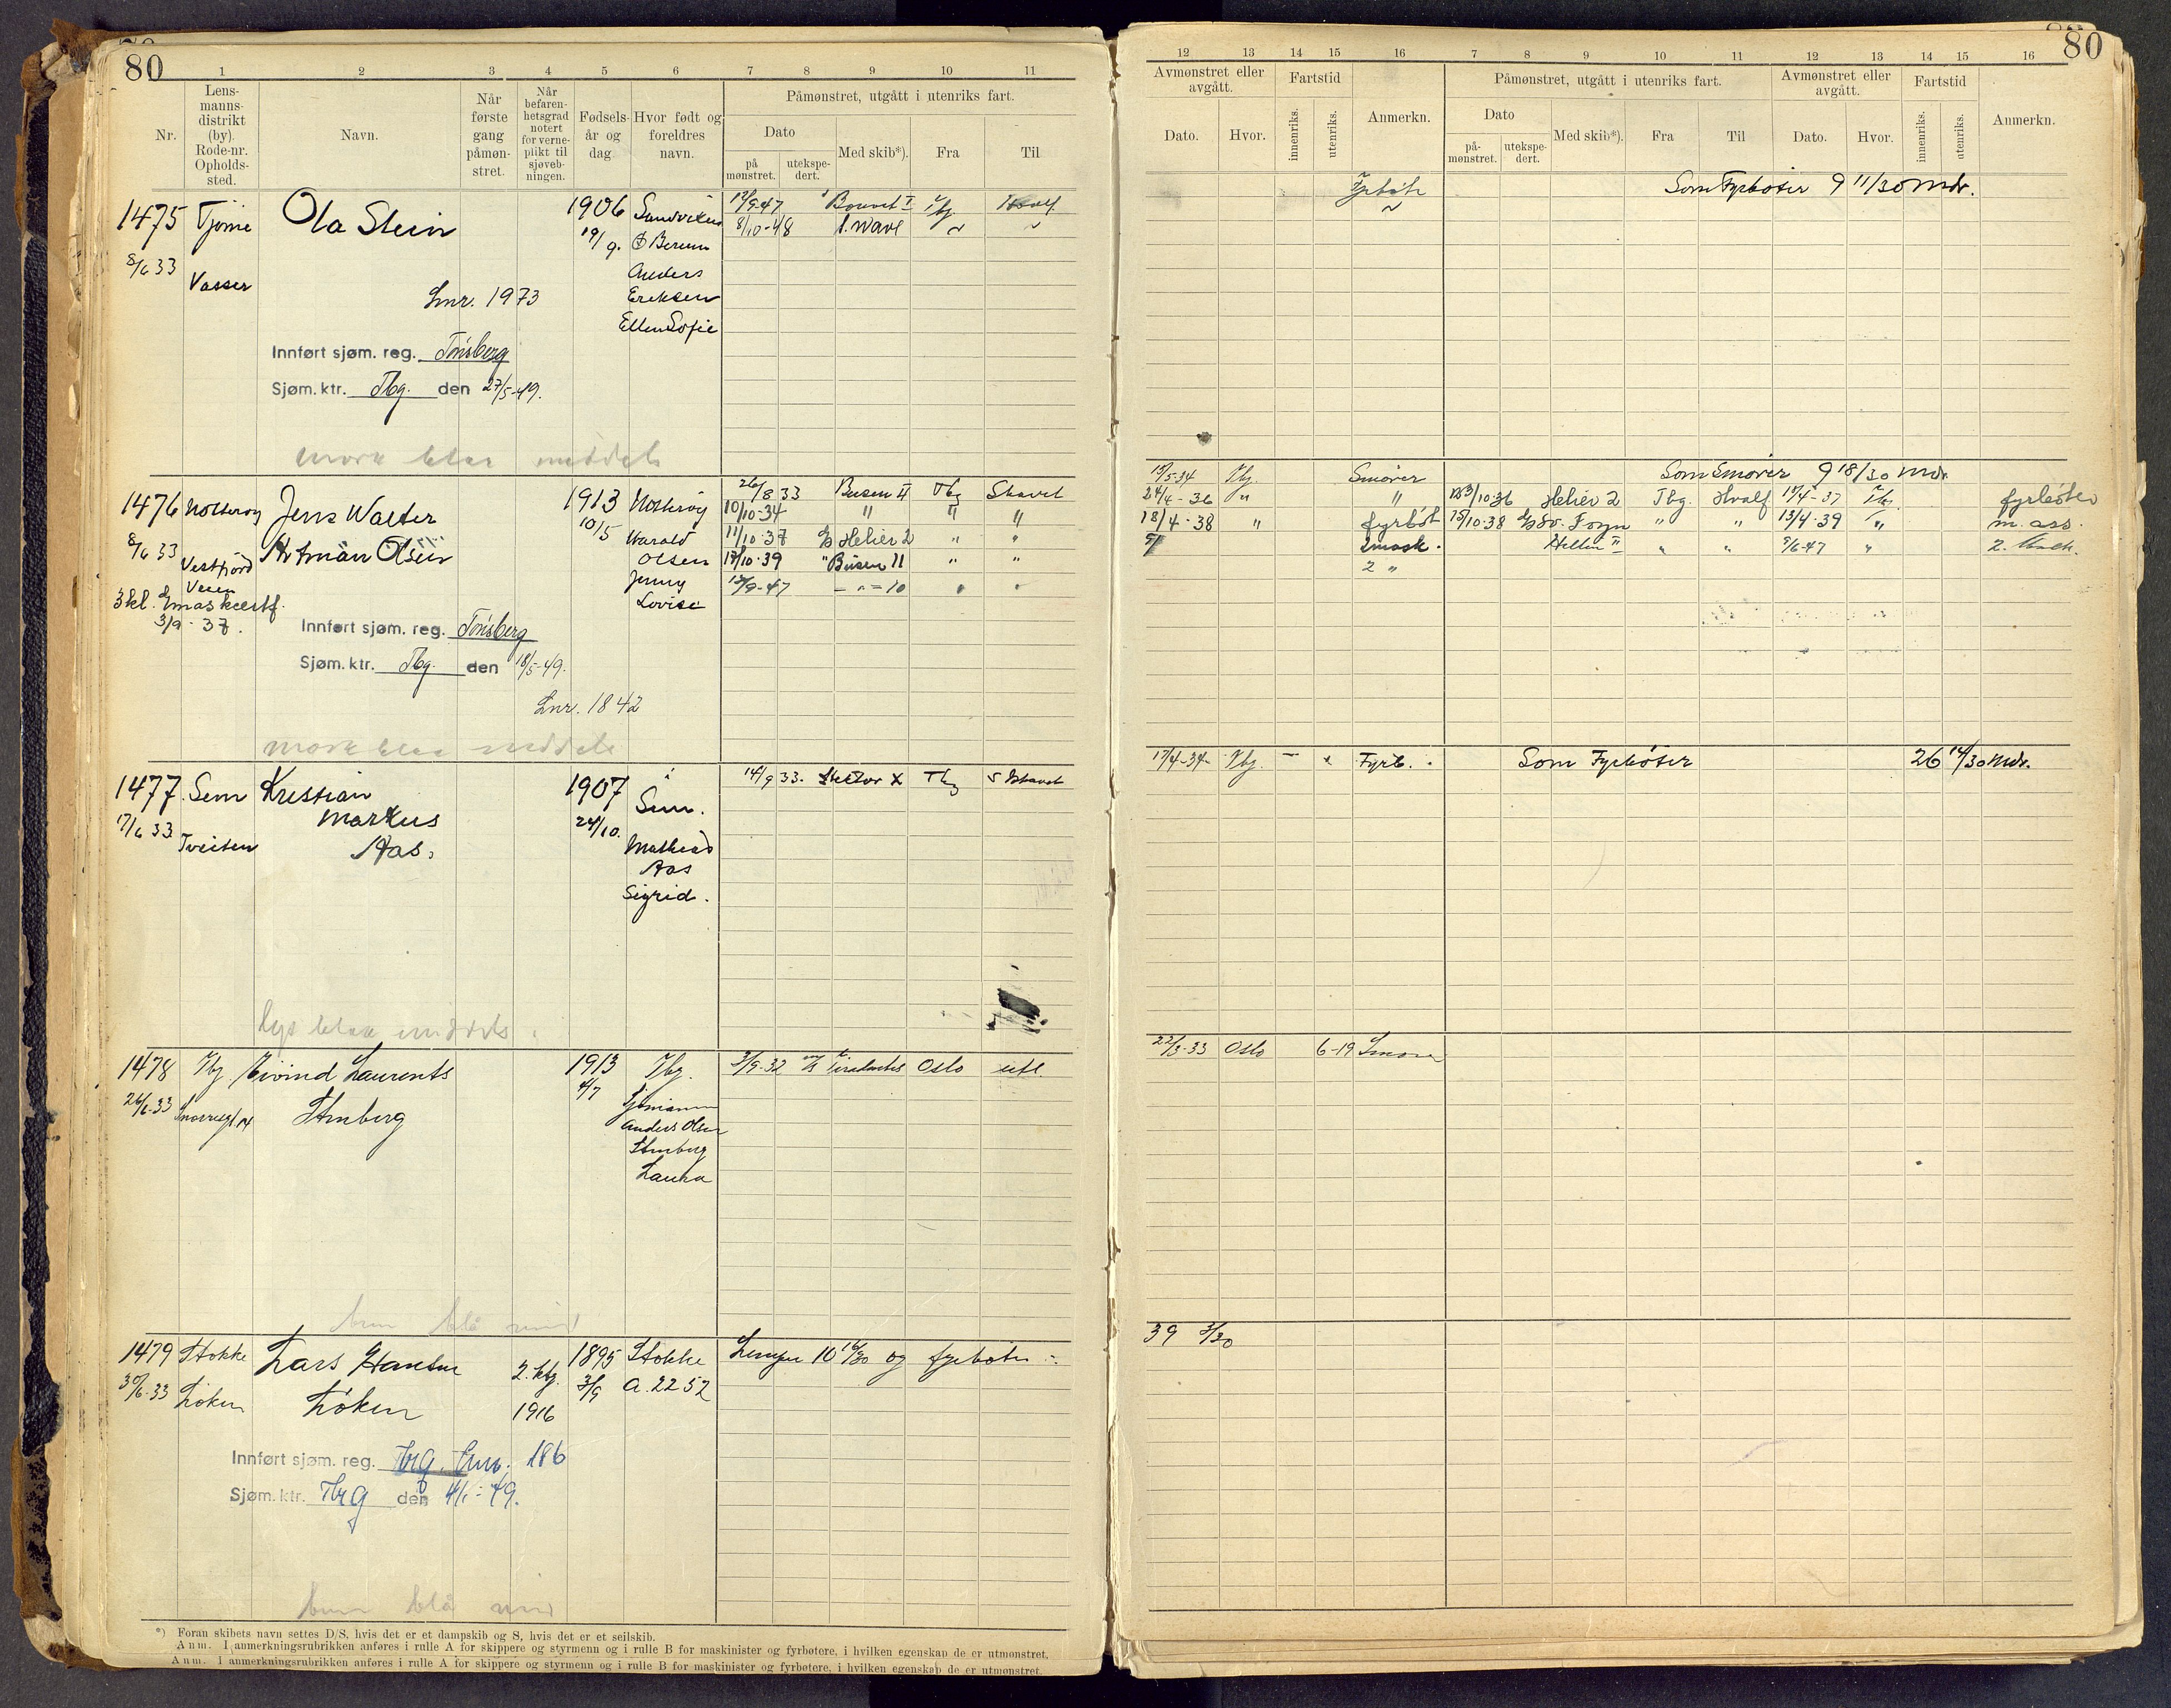 80
1 2 3 4 5 6 7 8 9 10 11
Nr.
Lens-
manns-
distrikt
(by).
Rode-nr.
Opholds-
sted.
Navn.
Når
første
gang
påmøn-
stret.
Når
befaren-
hetsgrad
notert
for verne-
plikt til
sjøveb-
ningen.
Fødsels-
år og
dag.
Hvor født og
foreldres
navn.
Påmønstret, utgått i utenriks fart.
Dato
på
mønstret.
utekspe-
dert.
Med skib*).
Fra
Til
1475 Tjøme Ola Stein 1906 Sandviken
19/9. Berum
8/6 33 Vasser
Anders
Eriksen
Ellen Sofie
8/10-48 S. Wave
Lnr. 1973
Innført sjøm. reg. Tønsberg
Sjøm. ktr. Tbg. den 27/5-49.
mørk blaa middels
1476 Nøtterøy Jens Walter 1913 Nøtterøy 26/8 33 Busen II Tbg S havet
10/5 10/10-34 " " "
8/6 33 Artman Olsen Harald 11/10-37 Helier 2 " "
Vestfjord Olsen 17/10-39 " Busen 11 " "
Veien Jenny
Lovise
3 kl.
3/9-37.
Innført sjøm. reg. Tønsberg
Sjøm. ktr. Tbg. den 18/5-49.
Lnr. 1842
mørk blaa middels
1477 Sem Kristian 1907 i Sem. 14/9 33. Hektor X Tbg S Ishavet
17/6 33 Tveiten Markus 24/10.
Aas.
Mathias
Aas
Sigrid.
lys blaa middels.
1478 Tbg Eivind Laurents 1913 Tbg. 3/9-32 Oslo utl.
26/6-33 4/7
Stenberg
Anders Olsen
Stenberg
Laura
brun blå mid
1479 Stokke Lars Hansen 2. ktg. 1895 Stokke Lemper 10 16/30 og fyrbøter
30/6-33 Løken Løken 1916 3/9 a. 2252
Innført sjøm. reg. Tbg. Lnr. 186
Sjøm. ktr. Tbg den 4/1-49.
brun blå mid
*) Foran skibets navn settes D/S, hvis det er et dampskib og S, hvis det er et seilskib.
Anm. I anmerkningsrubrikken anføres i rulle A for skippere og styrmenn og i rulle B for maskinister og fyrbøtere, i hvilken egenskap de er utmønstret.
Anm. I anmerkningsrubrikken anføres i rulle A for skippere og styrmenn og i rulle B for maskinister og fyrbøtere, i hvilken egenskap de er utmønstret.
80
12 13 14 15 16 7 8 9 10 11 12 13 14 15 16
Avmønstret eller
avgått.
Dato.
Hvor.
Fartstid
innenriks.
utenriks.
Anmerkn.
Påmønstret, utgått i utenriks fart.
Dato
på-
mønstret.
utekspe-
dert.
Med skib*).
Fra
Til
Avmønstret eller
avgått.
Dato.
Hvor.
Fartstid
innenriks.
utenriks.
Anmerkn.
Som Fyrbøter 9 11/30 mdr.
15/5-34 Tbg. Smører Som Smører 9 18/30 mdr
24/4-36 " " Helier 2 Tbg. Hvalf 17/4-37 fyrbøter
18/4-38 " fyrbøt 15/10-38 Sv. Foyn " " 13/4-39 " m. ass.
2 mask. 5/6-47 "
2 "
17/4-34 Tbg. Fyrb. Som Fyrbøter 26 14/30 mdr.
22/3-33 Oslo 6-19 Smører
39 3/30